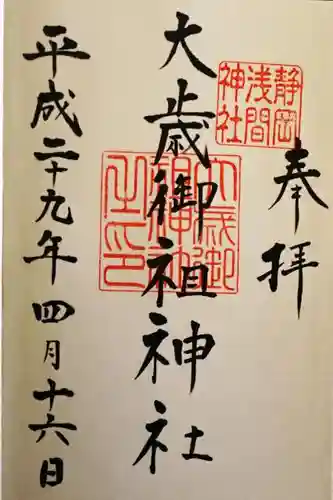 奉拝
静岡
浅間
神社
大歳御祖神社
大歳御
祖神社
之印
平成二十九年四月十六日